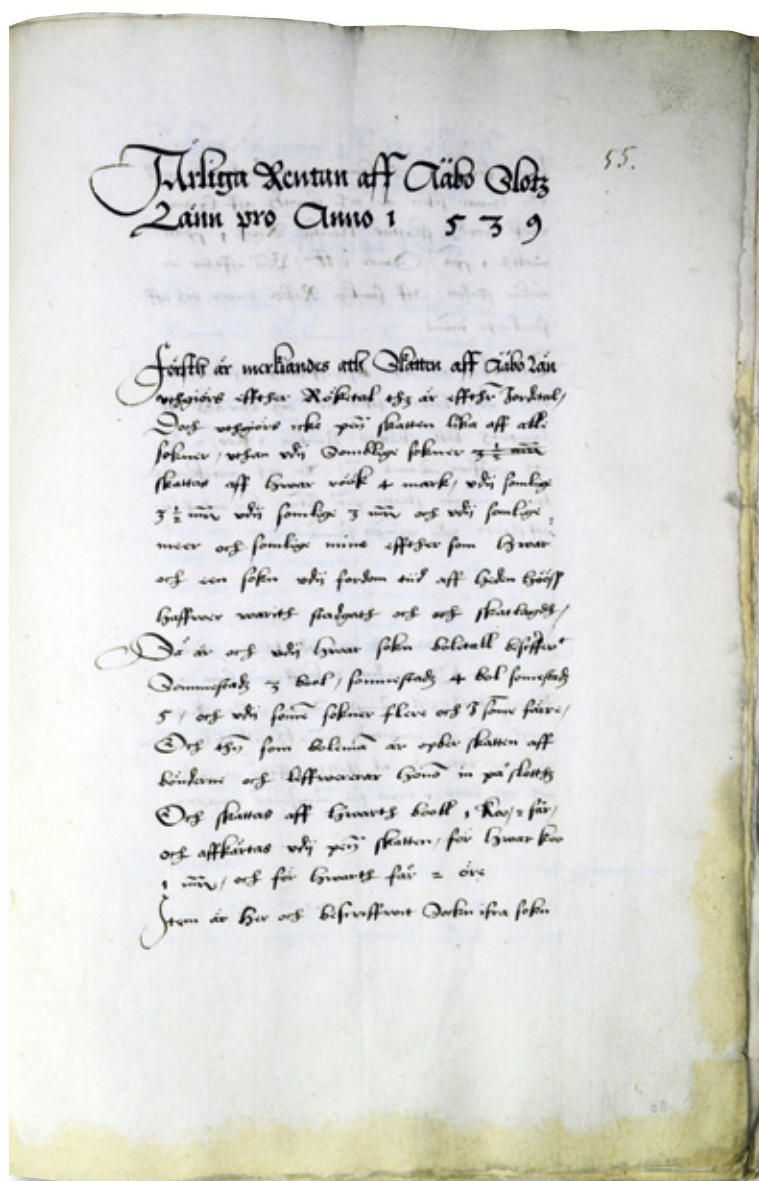 55.
Årliga Rentan aff Åäbo Slotz
Länn pro Anno 1 5 3 9
Försth är merkiandes ath Skatten aff Åäbo Län
uthgiörs effther Röketal thz är effthr Jordetal,
Doch uthgiörs icke pen̄ skatten lika aff alle
sokner, uthan udij Somblige sokner 3 ½ mr̄
skattas aff hwar röök 4 mark, udij somlige
3 ½ mr̄ udij somlige 3 mr̄ och udij somlige
meer och somlige mine effther som hwar
och een sokn udij fordom tiid aff heden
haffwer warith stadgath och och skatlagdt,
Så är och udij hwar sokn boletall
Sommestadz 3 bool, sommestadz 4 bol somestadz
5, och udij som̄e sokner flere och J som̄e färre,
Och thn̄ som boleman̄ är opber skatten aff
bönderne och leffwererar honō in på slotthz
Och skattas aff hwarth booll 1 Koo, 2 får,
och affkårtas udij pen̄ skatten, för hwar koo
1 mr̄, och för hwarth får 2 öre
Item är her och bescriffwit Sockn ifra sokn